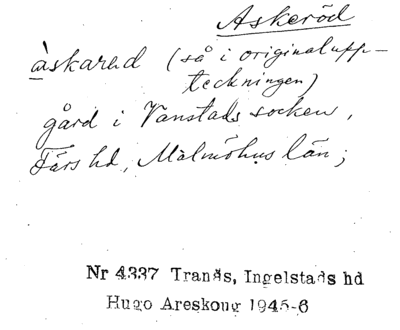 Askeröd
àskarad (så i originalupp-
teckningen)
gård i Vanstads socken,
Färs hd, Malmöhus län;
Nr 4337 Tranås, Ingelstads hd
Hugo Areskoug 1945-6